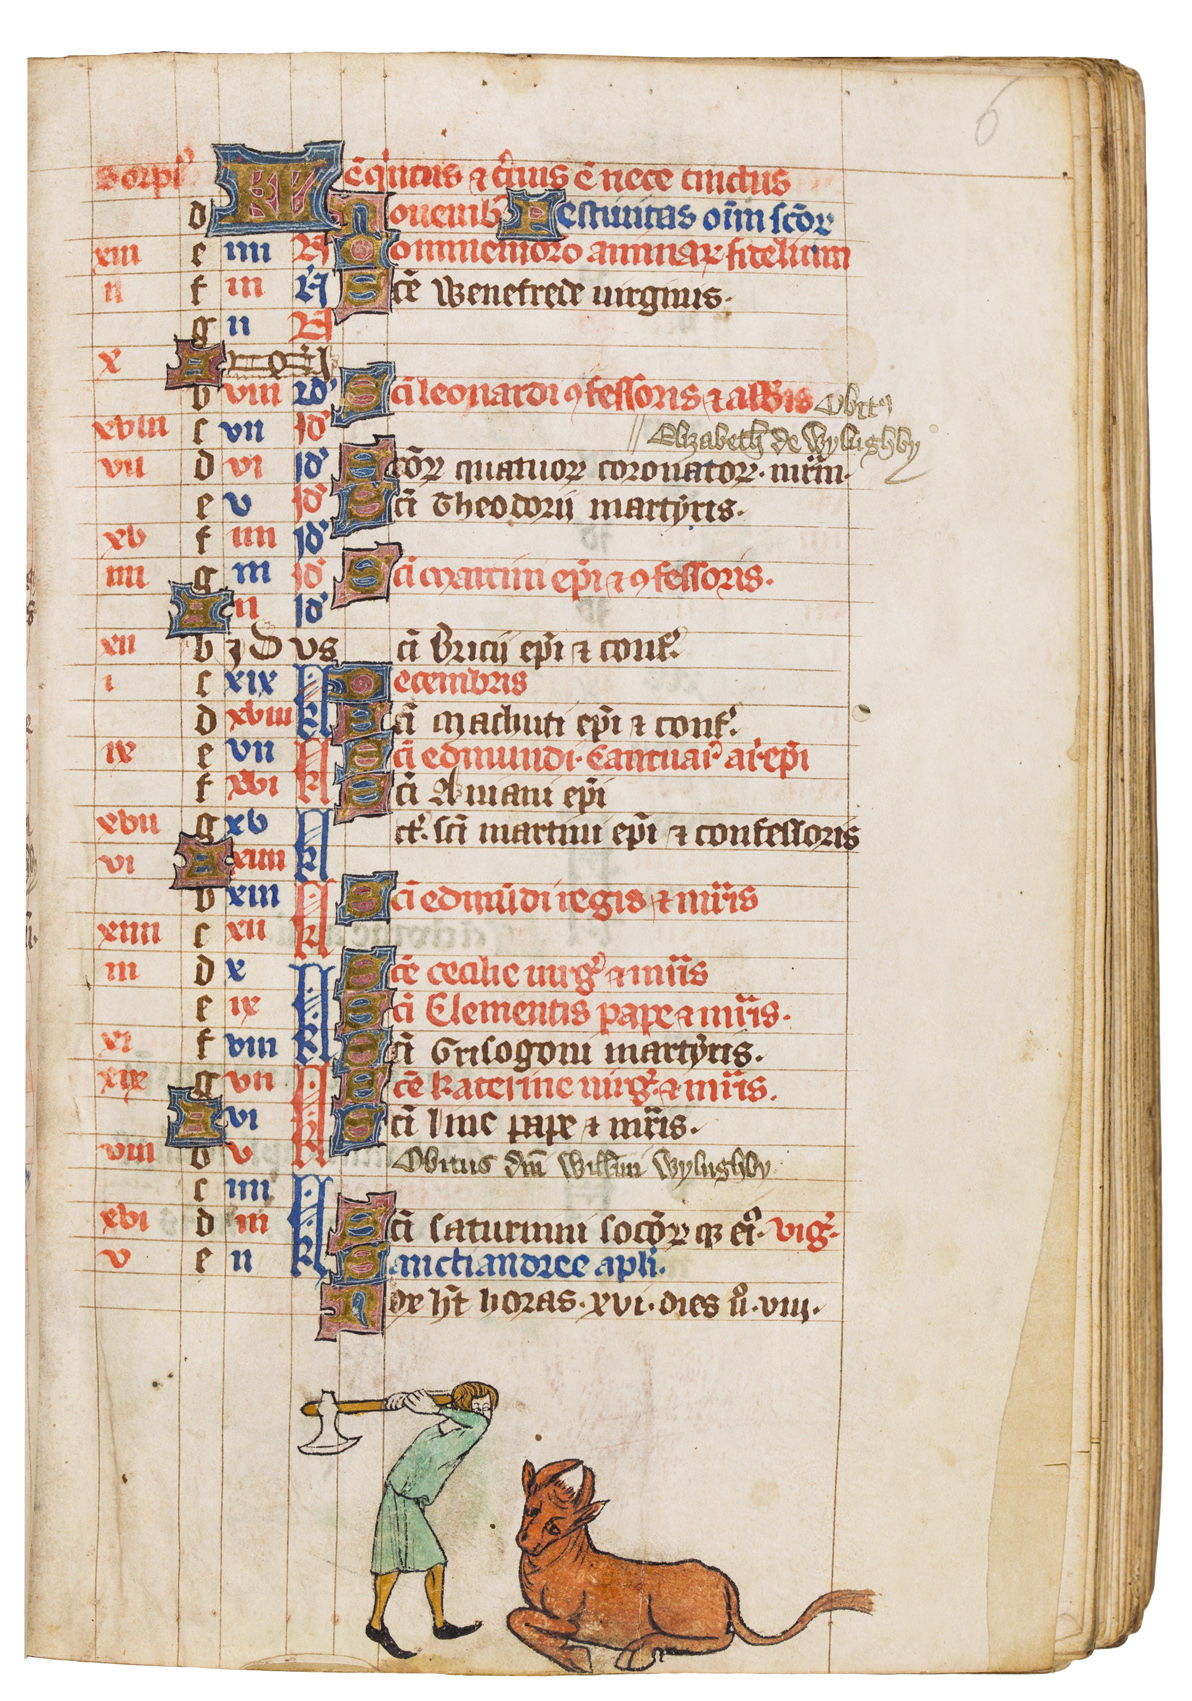 6
Scorpius KL Equitus & tius e nece cinctus
d Novemb Festivitas oim scor
xiii e iiii N Commemoro animar fidelium
ii f iii N Sce Wenefrede virginis.
g ii N
x A non
b viii Id Sci leonardi 9fessoris & abbis Obit9
xviii c vii Id Elizabeth de Wylughby
vii d vi Id Scor quatuor coronator. mrm.
e v Id Sci Theodorii martyris.
xv f iiii Id
iiii g iii Id Sci martini epi & 9fessoris.
A ii Id
xii b idvs Sci Bricii epi & conf.
i c xix kl Decembris
d xviii kl Sci Machuti epi & conf.
ix e vii kl Sci edmundi. Cantuar arepi
f xvi kl Sci Aniani epi
xvii g xv kl oct. sci martini epi & confessoris
vi A xiiii kl
b xiii kl Sci edmundi regis & mris
xiiii c xii kl
iii d x kl Sce cecilie virg & mris
e ix kl Sci Clementis pape & mris.
xi f viii kl Sci Grisogoni martyris.
xix g vii kl Sce Katerine virg. & mris.
A vi kl Sci lini pape & mris.
viii b v kl Obitus dni Willmi Wylughby
c iiii kl
xvi d iii kl Sci saturnini socor q ei. vig.
v e ii kl Sancti andree apli.
Nox ht horas. xvi. dies u. viii.